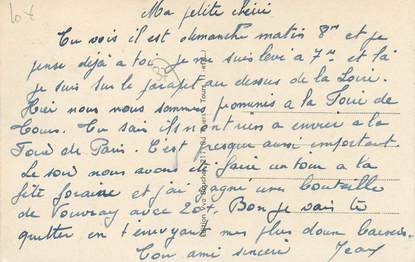 10 F
Ma petite chérie
Tu vois il est dimanche matin 8h et je
pense déjà à toi je me suis levé à 7h et là
je suis sur le parapet au dessus de la Loire.
37
Hier nous nous sommes promenés à la Foire de
Tours. Tu sais ils n'ont rien a envier a la
Foire de Paris. C'est presque aussi important.
Le soir nous avons été faire un tour a la
fête foraine et j'ai gagné une bouteille
de Vouvray avec 20F. Bon je vais te
quitter en t'envoyant mes plus doux baisers.
Ton ami sincère Jean
Tours